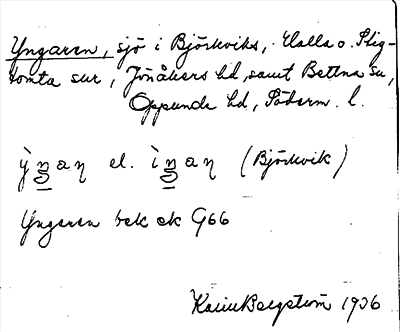 Yngaren, sjö i Björkviks, Halla o. Stig-
tomta sur, Jönåkers hd, samt Bettna su,
Oppunda hd, Söderm. l.
ỳŋan el. ìŋan (Björkvik)
Yngaren bek ek G66
Karin Bergström 1936